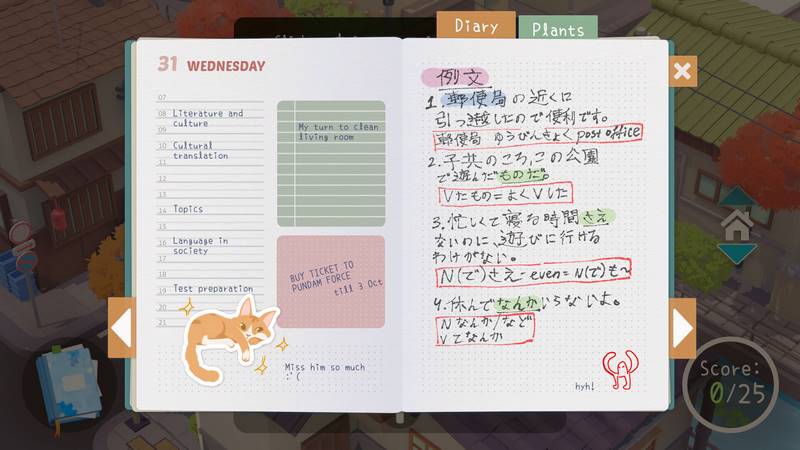 Diary
Plants
31 WEDNESDAY
07
08 Literature and
culture
09
10 Cultural
translation
14 Topics
15
16 Language in
society
17
18
19 Test preparation
20
21
My turn to clean
living room
BUY TICKET TO
PUNDAM FORCE
till 3 Oct
Miss him so much
:'(
例文
1.郵便局の近くに
引っ越したので便利です。
郵便局 ゆうびんきょく post office
2.子共のころ、この公園
で遊んだものだ。
Vたもの=よくVした
3.忙しくて寝る時間さえ
ないのに、遊びに行ける
わけがない。
N(で)さえ-even=N(で)も~
4.休んでなんかいらないよ。
Nなんか/など
Vてなんか
hyh!
Score:
0/25